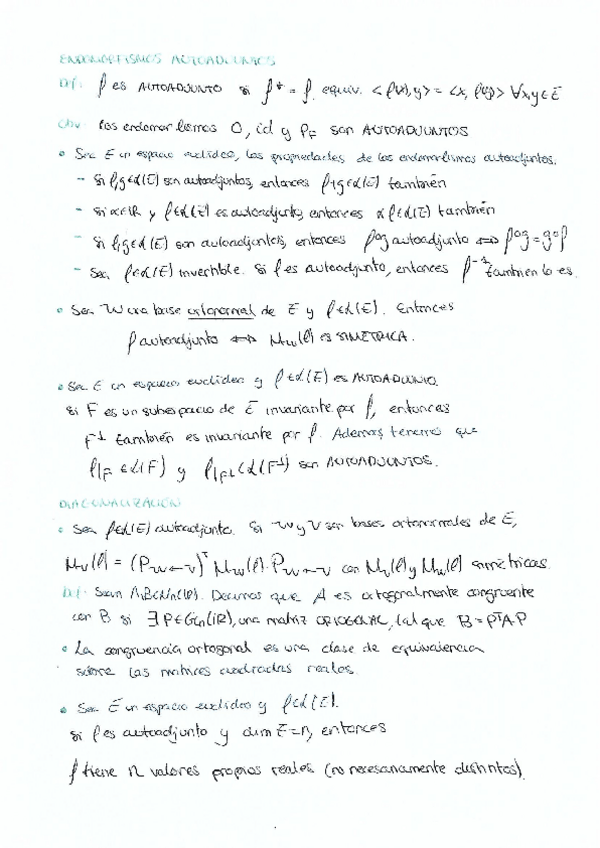 ENDOMORFISMOS AUTOADJUNTOS
Def: f es AUTOADJUNTO si f* = f. equiv. <f(x),y> = <x, f(y)> ∀x,y∈E
Obv: los endomorfismos 0, id y P_F son AUTOADJUNTOS
• Sea E un espacio euclídeo, las propiedades de los endomorfismos autoadjuntos.
- Si f,g∈L(E) son autoadjuntos, entonces f+g∈L(E) también
- Si α∈ℝ y f∈L(E) es autoadjunto, entonces αf∈L(E) también
- Si f,g∈L(E) son autoadjuntos, entonces f∘g autoadjunto ⇔ f∘g = g∘f
- Sea f∈L(E) invertible. Si f es autoadjunto, entonces f⁻¹ también lo es.
• Sea W una base ortonormal de E y f∈L(E). Entonces
f autoadjunto ⇔ M_W(f) es SIMÉTRICA.
• Sea E un espacio euclídeo y f∈L(E) es AUTOADJUNTO.
Si F es un subespacio de E invariante por f, entonces
F⊥ también es invariante por f. Además tenemos que
f|F ∈L(F) y f|F⊥∈L(F⊥) son AUTOADJUNTOS.
DIAGONALIZACIÓN
• Sea f∈L(E) autoadjunto. Si W y V son bases ortonormales de E,
M_V(f) = (P_W←V)ᵀ M_W(f)·P_W←V con M_V(f) y M_W(f) simétricas.
Def: Sean A,B∈Mn(ℝ). Decimos que A es ortogonalmente congruente
con B si ∃P∈Gln(ℝ), una matriz ORTOGONAL, tal que B = PᵀA·P
• La congruencia ortogonal es una clase de equivalencia
sobre las matrices cuadradas reales.
• Sea E un espacio euclídeo y f∈L(E).
Si f es autoadjunto y dim E = n, entonces
f tiene n valores propios reales (no necesariamente distintos).